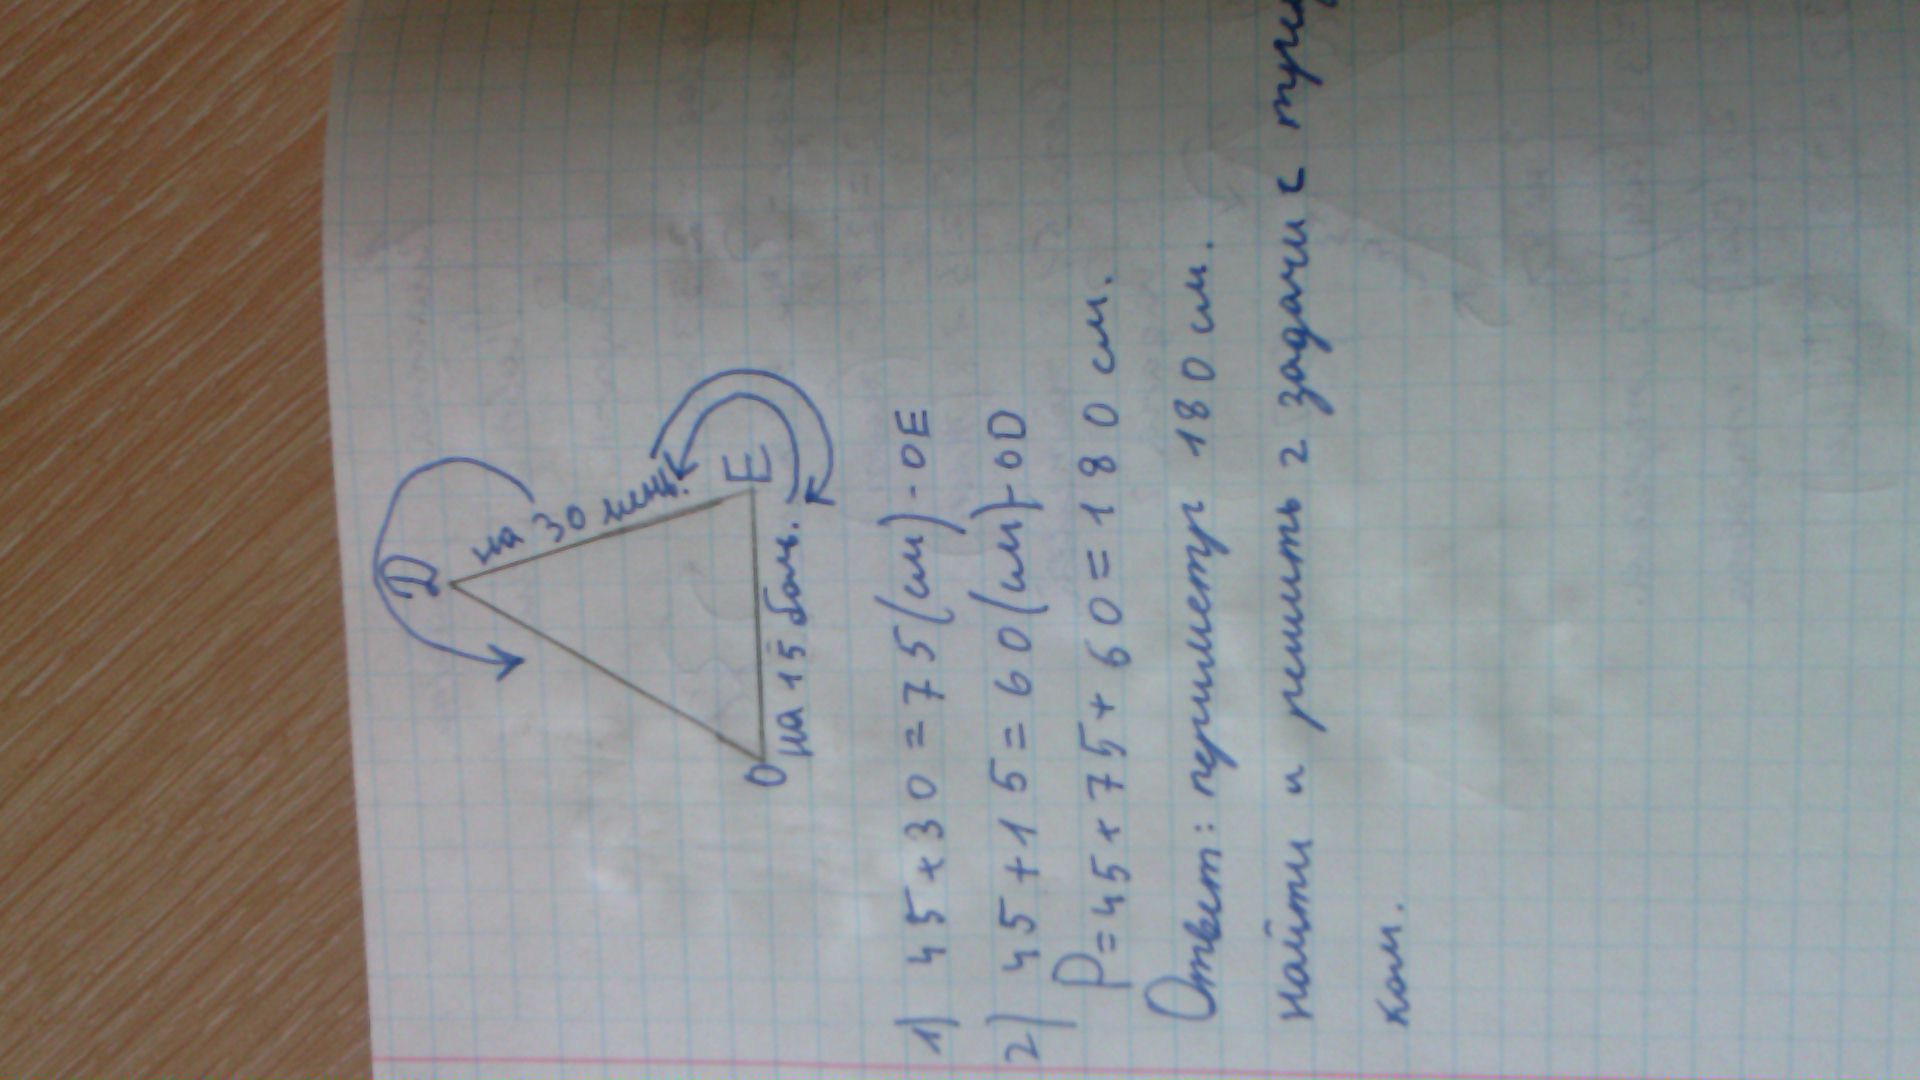 D
на 30 меньш.
E
O
на 15 больш.
1) 45+30=75(см)-OE
2) 45+15=60(см)-OD
P=45+75+60=180 см.
Ответ: периметр 180 см.
Найти и решить 2 задачи с
ком.